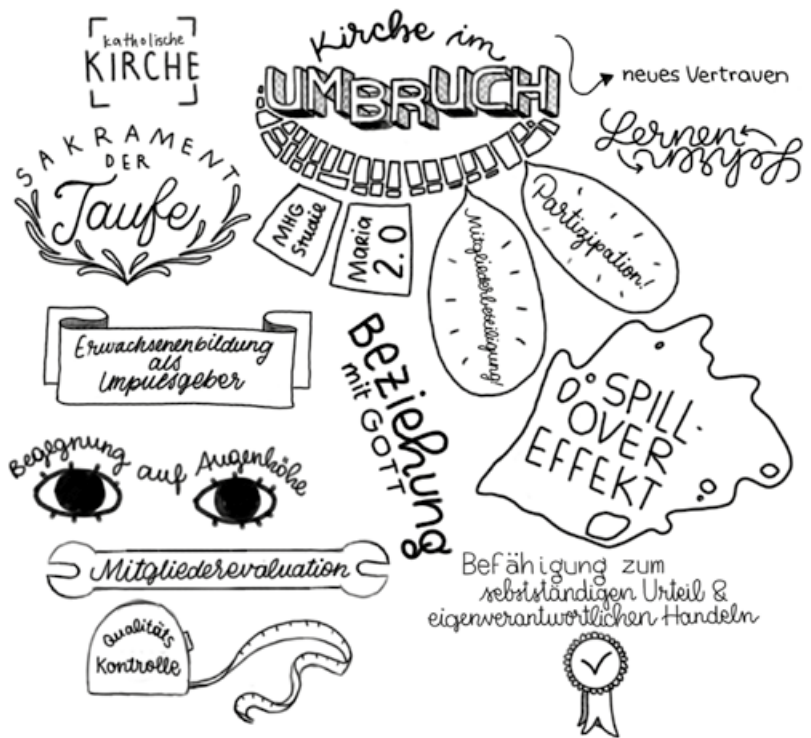 katholische
KIRCHE
Kirche im
UMBRUCH
neues Vertrauen
Lernen
Lehren
SAKRAMENT
DER
Taufe
MHG
Studie
Maria
2.0
Mitgliederbeteiligung!
Partizipation!
Erwachsenenbildung
als
Impulsgeber
Beziehung
mit GOTT
SPILL
OVER
EFFEKT
Begegnung auf Augenhöhe
Mitgliederevaluation
Qualitäts
Kontrolle
Befähigung zum
sebstständigen Urteil &
eigenverantwortlichen Handeln